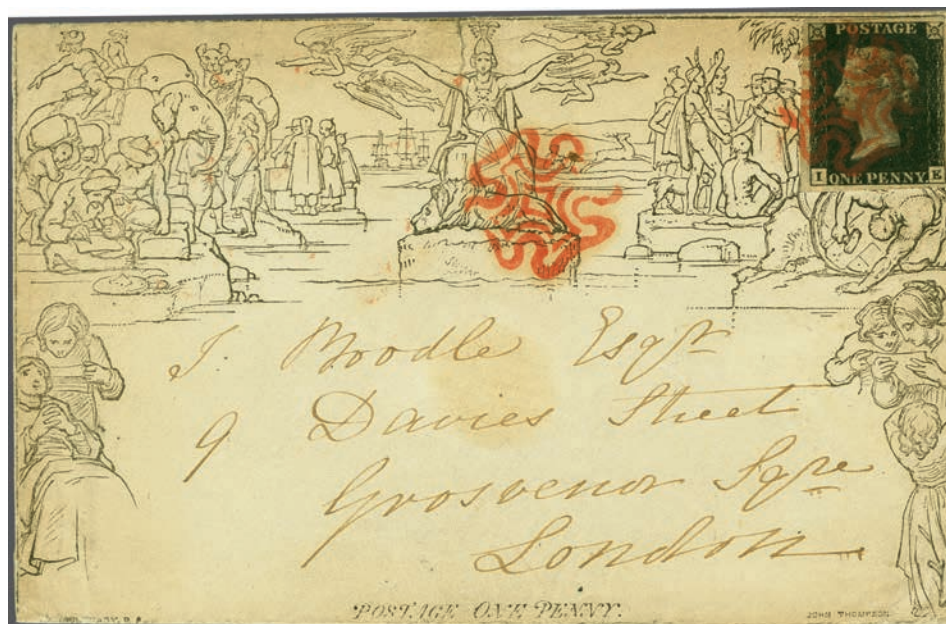 POSTAGE
I ONE PENNY E
J. Moodle Esqr
9 Davies Street
Grosvenor Sqre
London
POSTAGE ONE PENNY.
JOHN THOMPSON